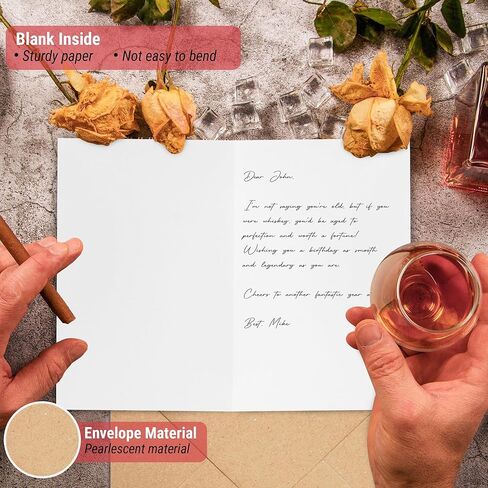 Blank Inside
• Sturdy paper • Not easy to bend
Dear John,
I'm not saying you're old, but if you
were whiskey, you'd be aged to
perfection and worth a fortune!
Wishing you a birthday as smooth
and legendary as you are.
Cheers to another fantastic year
Best, Mike
Envelope Material
Pearlescent material